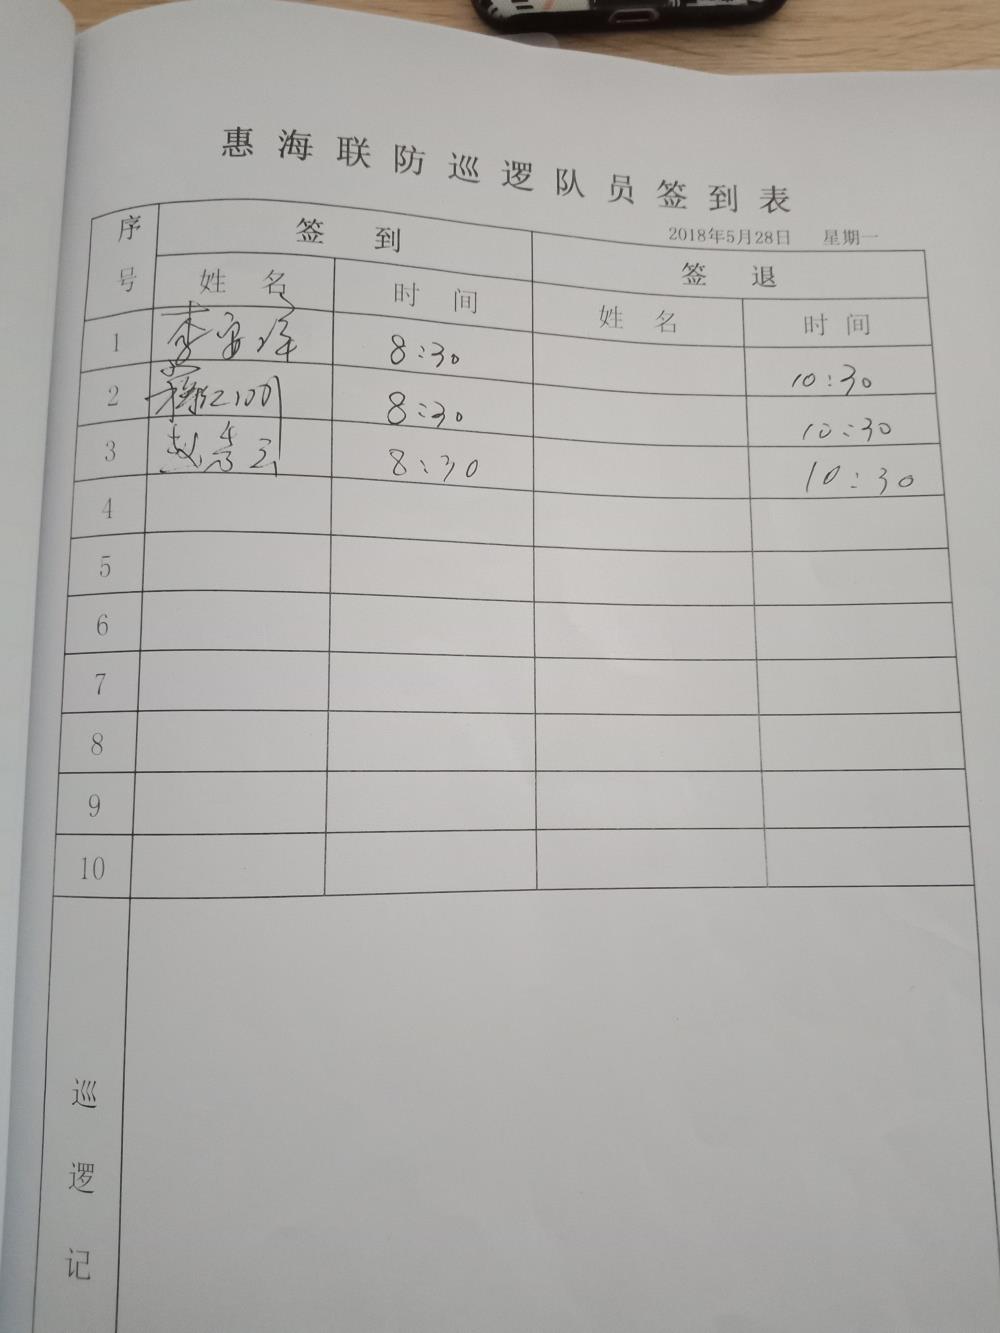 惠海联防巡逻队员签到表
2018年5月28日 星期一
序号 签到 签退
姓名 时间 姓名 时间
1 8:30 10:30
2 8:30 10:30
3 8:30 10:30
4
5
6
7
8
9
10
巡逻记